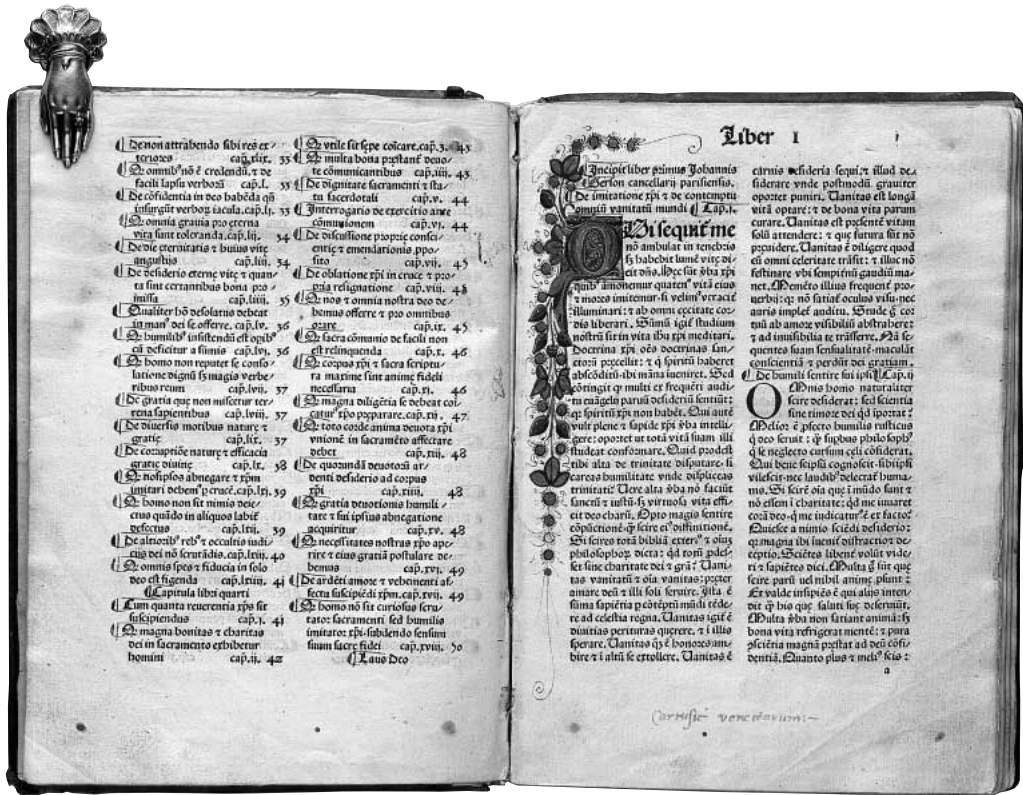 De non attrahendo sibi res ex-
teriores cap̄.xlix. 33
Q omnibꝰ nō ē credendū, ⁊ de
facili lapsu verboꝝ cap̄.l. 33
De cōfidentia in deo habēda qn̄
insurgūt verboꝝ iacula.cap̄.lj. 33
Q omnia grauia pro eterna
vita sunt toleranda.cap̄.lij. 34
De die eternitatis ⁊ huius vite
angustijs cap̄.liij. 34
De desiderio eterne vite ⁊ quan-
ta sint certantibus bona pro-
missa cap̄.liiij. 35
Qualiter hō desolatus debeat
in manꝰ dei se offerre. cap̄.lv. 36
Q humilibꝰ insistendū est opibꝰ
cū deficitur a sūmis cap̄.lvj. 36
Q homo non reputet se conso-
latione dignū sꝫ magis verbe-
ribus reum cap̄.lvij. 37
De gratia que non miscetur ter-
rena sapientibus cap̄.lviij. 37
De diuersis motibus nature ⁊
gratie cap̄.lix. 37
De corruptiōe nature ⁊ efficacia
gratie diuine cap̄.lx. 38
Q nosipsos abnegare ⁊ xp̄m
imitari debemꝰ ꝑ crucē.cap̄.lxj. 39
Q homo non sit nimis deie-
ctus quādo in aliquos labit̄
defectus cap̄.lxij. 39
De altioribꝰ rebꝰ ⁊ occultis iudi-
cijs dei nō scrutādis.cap̄.lxiij. 40
Q omnis spes ⁊ fiducia in solo
deo est figenda cap̄.lxiiij. 41
Capitula libri quarti
Cum quanta reuerentia xp̄s sit
suscipiendus cap̄.j. 41
Q magna bonitas ⁊ charitas
dei in sacramento exhibetur
homini cap̄.ij. 42
Q vtile sit sepe cōicare.cap̄.3. 43
Q multa bona prestant̄ deuo-
te cōmunicantibus cap̄.iiij. 43
De dignitate sacramenti ⁊ sta-
tu sacerdotali cap̄.v. 44
Interrogatio de exercitio ante
cōmunionem cap̄.vj. 44
De discussione proprie consci-
entie ⁊ emendationis, ppo-
sito cap̄.vij. 45
De oblatione xp̄i in cruce ⁊ pro-
pria resignatione cap̄.viij. 45
Q nos ⁊ omnia nostra deo de-
bemus offerre ⁊ pro omnibus
orare cap̄.ix. 45
Q sacra cōmunio de facili non
est relinquenda cap̄.x. 46
Q corpus xp̄i ⁊ sacra scriptu-
ra maxime sunt anime fideli
necessaria cap̄.xj. 46
Q magna diligētia se debeat coi-
catur̄ xp̄o preparare.cap̄.xij. 47
Q toto corde anima deuota xp̄i
vnionē in sacramēto affectare
debet cap̄.xiij. 48
De quorundā deuotoꝝ ar-
denti desiderio ad corpus
xp̄i cap̄.xiiij. 48
Q gratia deuotionis humili-
tate ⁊ sui ipsius abnegatione
acquiritur cap̄.xv. 48
Q necessitates nostras xp̄o ape-
rire ⁊ eius gratiā postulare de-
bemus cap̄.xvj. 49
De ardēti amore ⁊ vehementi af-
fectu suscipiēdi xp̄m.cap̄.xvij. 49
Q homo nō sit curiosus scru-
tator sacramenti sed humilis
imitator xp̄i subdendo sensum
suum sacre fidei cap̄.xviij. 50
Laus Deo
Liber I
Incipit liber primus Johannis
Gerson cancellarij parisiensis.
De imitatione xp̄i ⁊ de contemptu
omniū vanitatū mundi Cap̄.j.
QUi sequit̄ me
nō ambulat in tenebris
sꝫ habebit lumē vite di-
cit dn̄s. Hec sūt v̄ba xp̄i
quibꝰ amonemur quatenꝰ vitā eius
⁊ mores imitemur si velimꝰ veraciē
illuminari: ⁊ ab omni cecitate cor-
dis liberari. Sūmū igit̄ studium
nostrū sit in vita ihū xp̄i meditari.
Doctrina xp̄i oēs doctrinas san-
ctoꝝ precellit: ⁊ q̄ spiritū haberet
absconditū ibi māna inueniret. Sed
cōtingit ꝙ multi ex frequēti audi-
tu euāgelij paruū desideriū sentiūt:
qꝛ spiritū xp̄i non habēt. Qui autē
vult plene ⁊ sapide xp̄i v̄ba intelli-
gere: oportet ut totā vitā suam illi
studeat conformare. Quid prodest
tibi alta de trinitate disputare, si
careas humilitate vnde displiceas
trinitati? Uere alta v̄ba nō faciūt
sanctū ⁊ iustū, sꝫ virtuosa vita effi-
cit deo charū. Opto magis sentire
cōpūctionē ꝙ scire eiꝰ diffinitionē.
Si scires totā bibliā exterꝰ ⁊ oīuꝫ
philosophoꝝ dicta: qd totū ꝓdes-
set sine charitate dei ⁊ grā? Uani-
tas vanitatū ⁊ oīa vanitas: preter
amare deū ⁊ illi soli seruire. Ista ē
sūma sapiētia ꝑ cōtēptū mūdi tēde-
re ad celestia regna. Uanitas igit̄ ē
diuitias perituras querere, ⁊ i illis
sperare. Uanitas qꝫ ē honores am-
bire ⁊ i altū se extollere. Uanitas ē
carnis desideria sequi, ⁊ illud de-
siderare vnde postmodū grauiter
oportet puniri. Uanitas est longā
vitā optare: ⁊ de bona vita parum
curare. Uanitas est presentē vitam
solū attendere: ⁊ que futura sūt nō
preuidere. Uanitas ē diligere quod
cū omni celeritate trāsit: ⁊ illuc nō
festinare vbi sempitnū gaudiū ma-
net. Memēto illius frequent̄ pro-
uerbij: qꝛ nō satiat̄ oculus visu, nec
auris implet̄ auditu. Stude g̊ cor
tuū ab amore visibiliū abstrahere:
⁊ ad inuisibilia te trāsferre. Nā se-
quentes suam sensualitatē maculāt
conscientiā ⁊ perdūt dei gratiam.
De humili sentire sui ipsiꝰ Cap̄.ij
OMnis homo naturaliter
scire desiderat: sed scientia
sine timore dei qd īportat?
Melior ē ꝓfecto humilis rusticus
q̄ deo seruit: ꝙ supbus philosophꝰ
q̄ se neglecto cursum celi cōsiderat.
Qui bene seipsū cognoscit, sibi ipsi
vilescit, nec laudibꝰ delectat̄ huma-
nis. Si scirē oīa que ī mūdo sunt ⁊
nō essem ī charitate: qd me iuuaret
corā deo, q̄ me iudicatur̄ ē ex facto?
Quiesce a nimio sciēdi desiderio:
qꝛ magna ibi iuenit̄ distractio ⁊ de-
ceptio. Sciētes libent̄ volūt vide-
ri ⁊ sapiētes dici. Multa sūt que
scire parū uel nihil anime psunt:
Et valde insipiēs ē qui alijs inten-
dit ꝙ his que saluti sue deseruiūt.
Multa v̄ba non satiant animā: sꝫ
bona vita refrigerat mentē: ⁊ pura
ꝯsciētia magnā prestat ad deū cōfi-
dentiā. Quanto plus ⁊ meliꝰ scis:
a